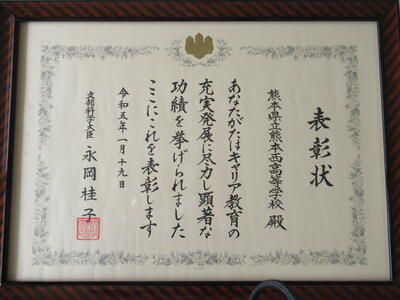 表彰状
熊本県立熊本西高等学校 殿
あなたがたはキャリア教育の
充実発展に尽力し顕著な
功績を挙げられました
ここにこれを表彰します
令和五年一月十九日
文部科学大臣 永岡桂子